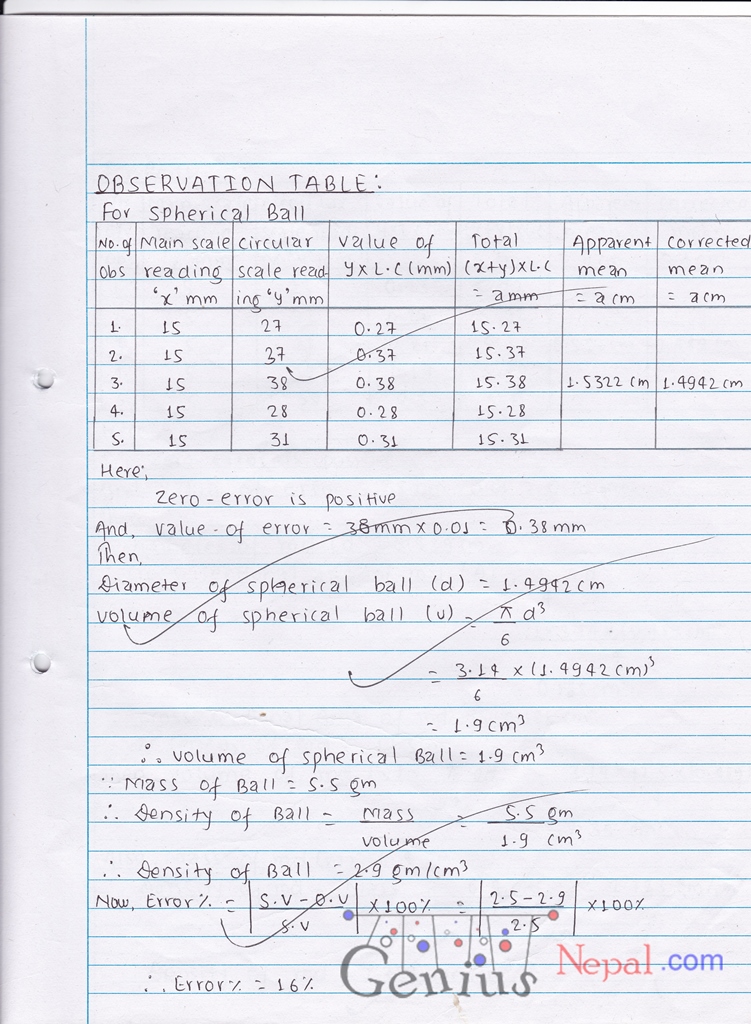 OBSERVATION TABLE:
For Spherical Ball
No. of Obs | Main scale reading 'x' mm | Circular scale reading 'y' mm | Value of y x L.C (mm) | Total (x+y) x L.C = a mm | Apparent mean = a cm | Corrected mean = a cm
1. 15 27 0.27 15.27
2. 15 37 0.37 15.37
3. 15 38 0.38 15.38 1.5322 cm 1.4942 cm
4. 15 28 0.28 15.28
5. 15 31 0.31 15.31
Here;
Zero-error is positive
And, value of error = 38mm x 0.01 = 0.38 mm
Then,
Diameter of spherical ball (d) = 1.4942 cm
Volume of spherical ball (v) = π/6 d³
= 3.14/6 x (1.4942 cm)³
= 1.9 cm³
∴ Volume of spherical Ball = 1.9 cm³
∵ Mass of Ball = 5.5 gm
∴ Density of Ball = Mass/Volume = 5.5 gm/1.9 cm³
∴ Density of Ball = 2.9 gm/cm³
Now, Error% = |S.V - O.V/S.V| x 100% = |2.5 - 2.9/2.5| x 100%
∴ Error% = 16%
Genius Nepal.com